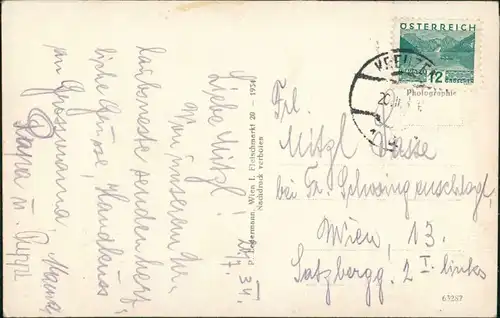 24/7. 34.
Liebe Mitzl!
Von unserem Ur-
laubsneste senden herz-
liche Grüsse! Handkuss
an Grossmama,
Mama
Papa u. Puppi
P. Ledermann, Wien I. Fleischmarkt 20 - 1934
Nachdruck verboten
ÖSTERREICH
12
GROSCHEN
KREUZE
Photographie
Frl.
Mitzl
bei Fr. Schwangenschlögl
Wien, 13.
Satzbergg. 2 I. links
63287